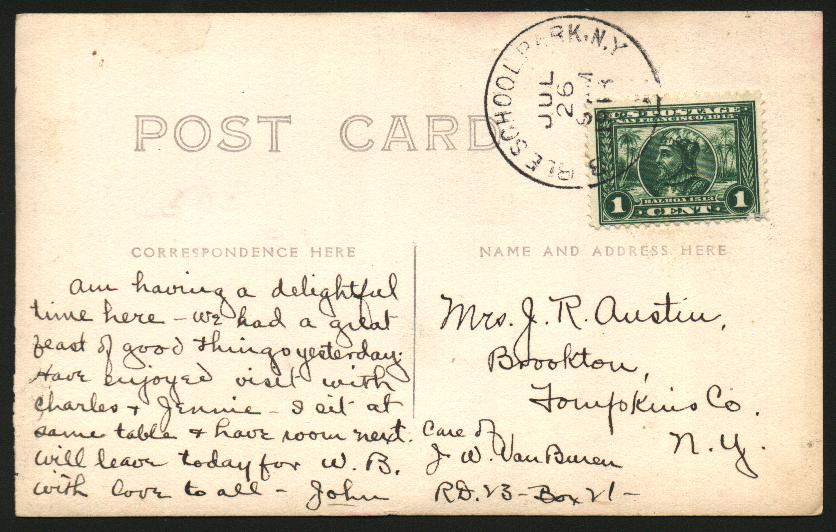 POST CARD
SCHOOL PARK, N.Y
JUL
26
U.S. POSTAGE
SAN FRANCISCO 1915
BALBOA 1513
1 CENT 1
CORRESPONDENCE HERE
NAME AND ADDRESS HERE
am having a delightful
time here - we had a great
feast of good things yesterday.
Have enjoyed visit with
Charles + Jennie - I sit at
same table + have room next.
will leave today for W. B.
with love to all - John
Mrs. J. R. Austin,
Brookton,
Tompkins Co.
N.Y.
Care of
J W. Van Buren
R.D. 23 - Box 21 -